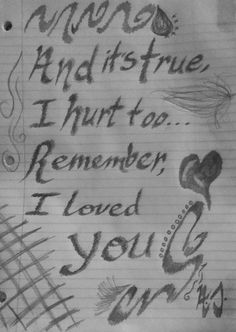 And it's true,
I hurt too...
Remember,
I loved
you
A.J.